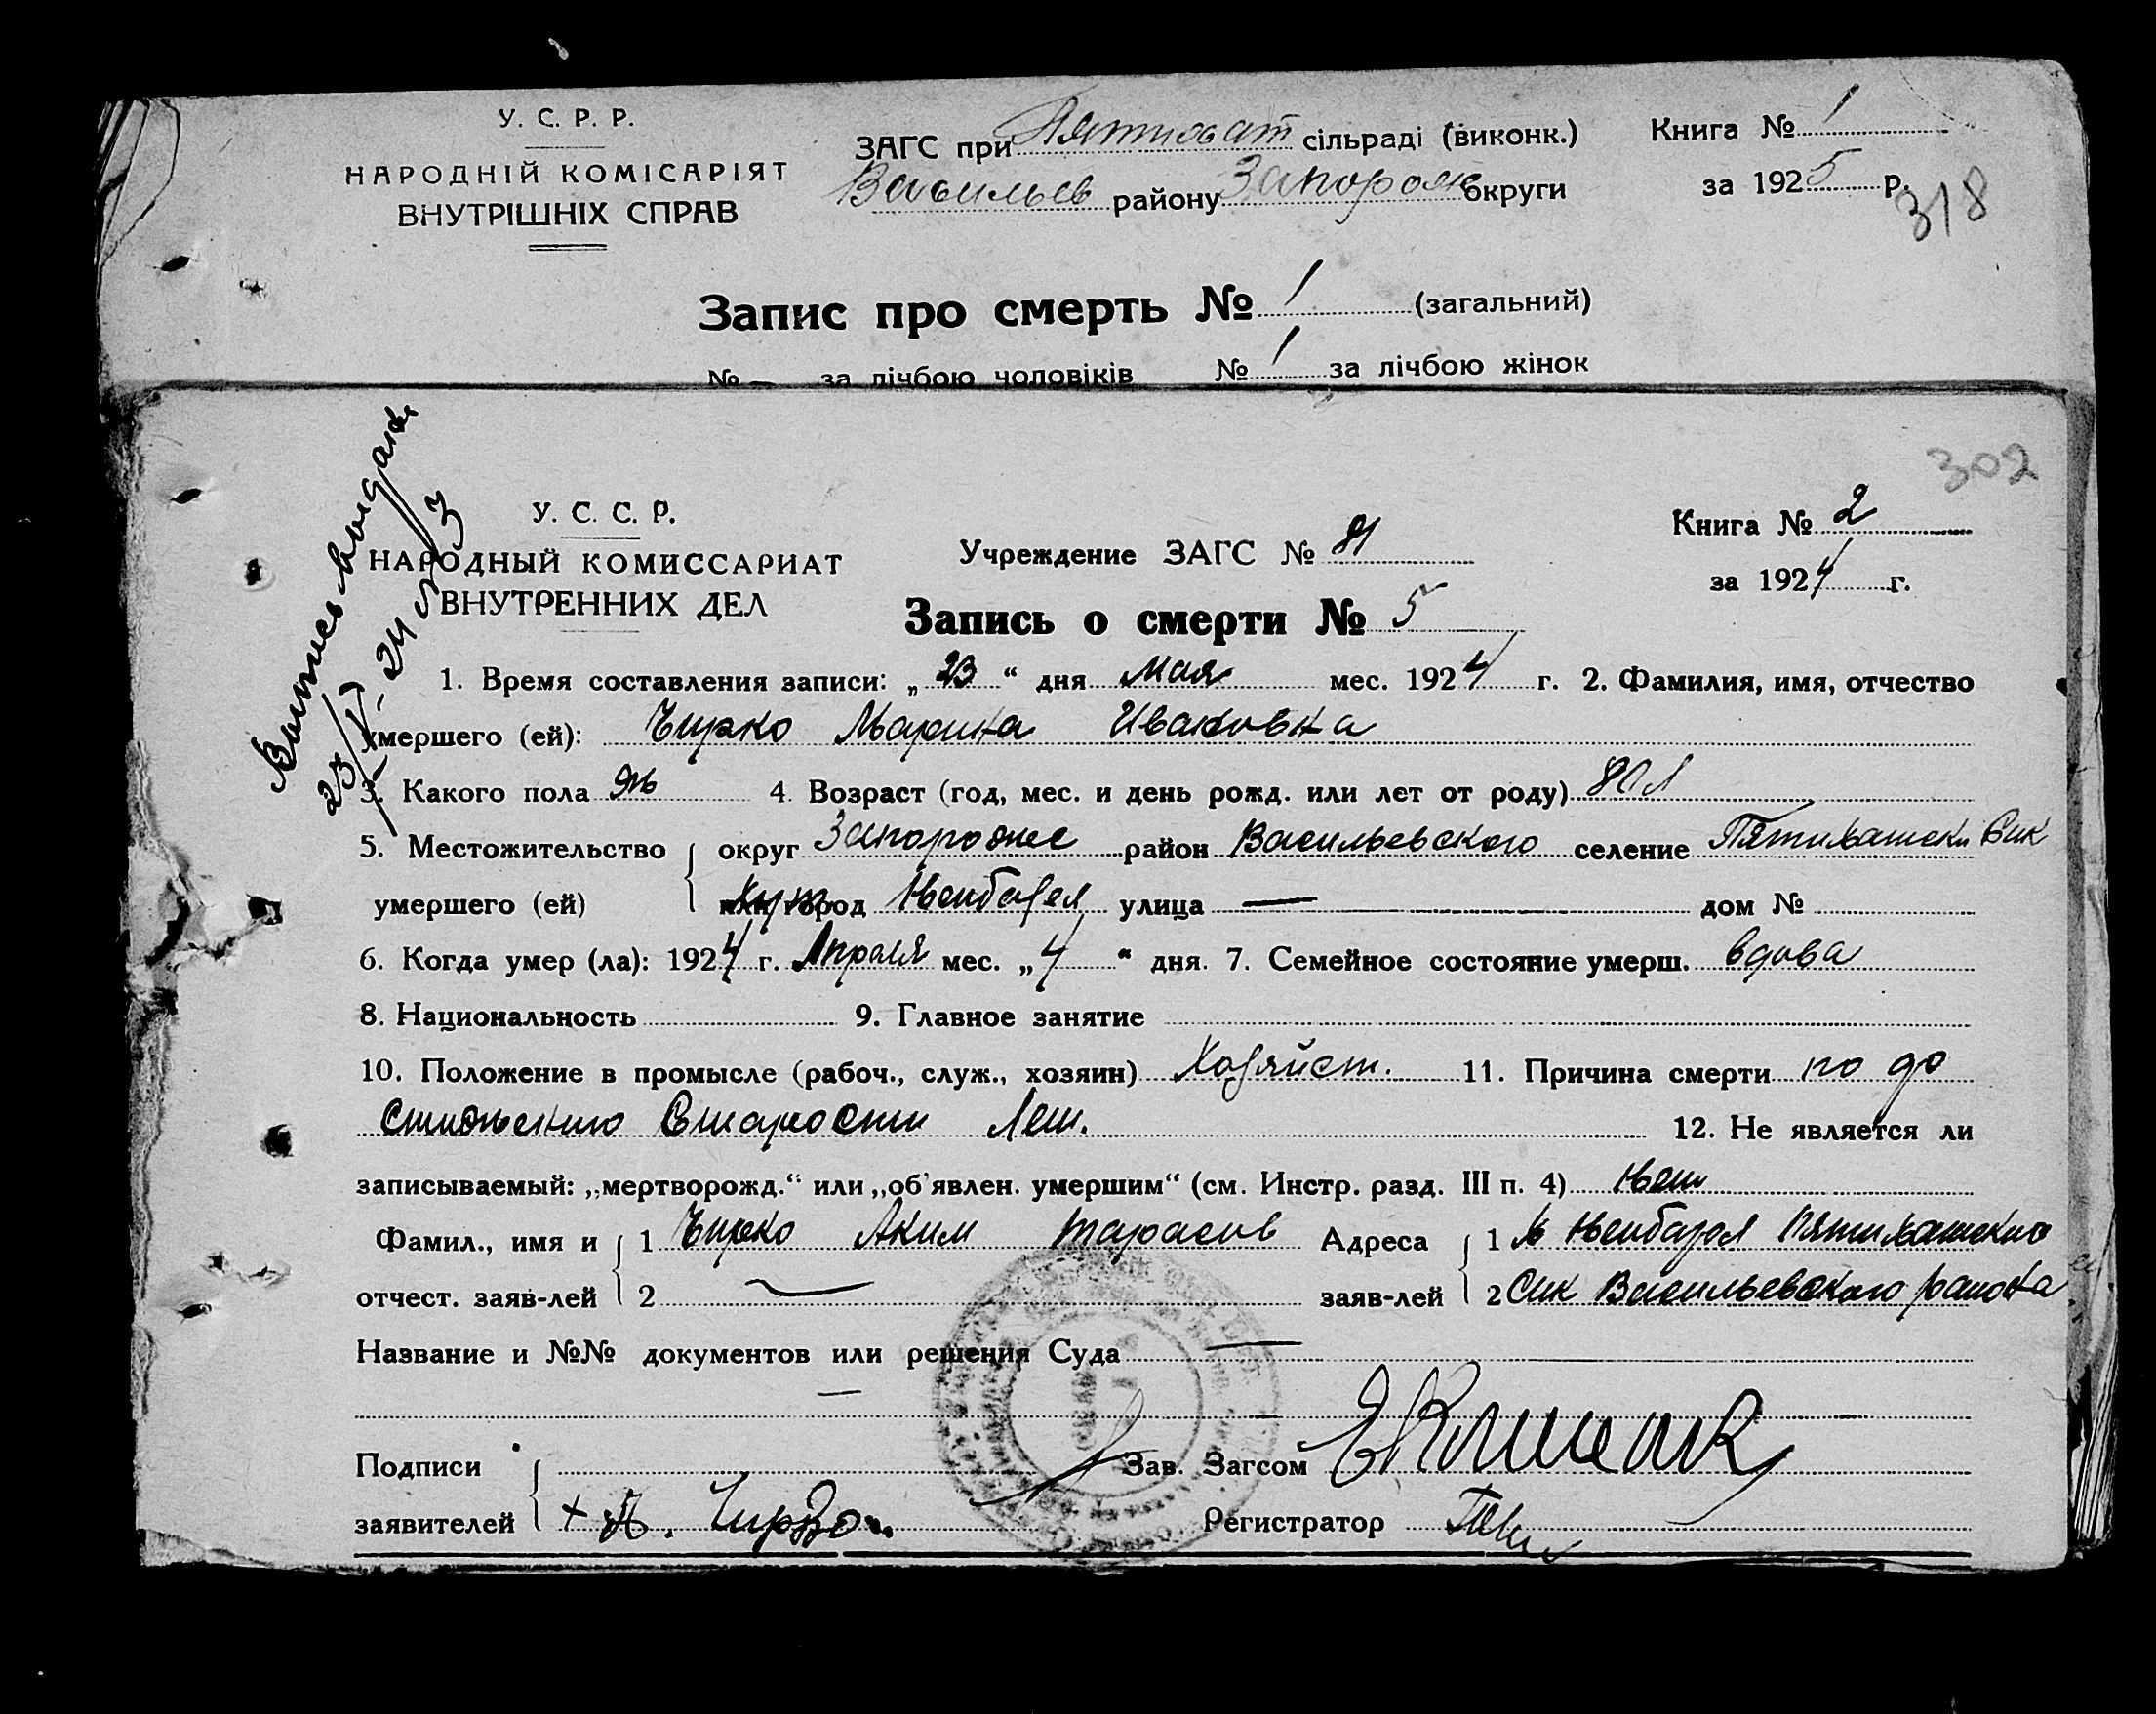 У. С. Р. Р.
НАРОДНІЙ КОМІСАРІЯТ
ВНУТРІШНІХ СПРАВ
ЗАГС при Пятихат сільраді (виконк.)
Васильев району Запорож округи
Книга № 1
за 1925 р.
318
Запис про смерть № 1 (загальний)
№ — за лічбою чоловіків № 1 за лічбою жінок
302
Выпись выдана
23/V - 24
У. С. С. Р.
НАРОДНЫЙ КОМИССАРИАТ
ВНУТРЕННИХ ДЕЛ
Учреждение ЗАГС № 81
Книга № 2
за 1924 г.
Запись о смерти № 5
1. Время составления записи: „23“ дня Мая мес. 1924 г. 2. Фамилия, имя, отчество
умершего (ей): Чирко Марина Ивановна
3. Какого пола ж 4. Возраст (год, мес. и день рожд. или лет от роду) 80 л
5. Местожительство округ Запорожье район Васильевского селение Пятихатски Сик
умершего (ей) или город улица — дом №
6. Когда умер (ла): 1924 г. Апраля мес. „4“ дня. 7. Семейное состояние умерш. вдова
8. Национальность 9. Главное занятие
10. Положение в промысле (рабоч., служ., хозяин) Хозяйст. 11. Причина смерти по до
Старости Лет. 12. Не является ли
записываемый: „мертворожд.“ или „об'явлен. умершим“ (см. Инстр. разд. III п. 4) Нет
Фамил., имя и 1 Чирко Аким Тарасов Адреса 1
отчест. заяв-лей 2 — заяв-лей 2 Сик Васильевского раиона
Название и №№ документов или решения Суда —
—
Подписи Зав. Загсом
заявителей + А. Чирко Регистратор